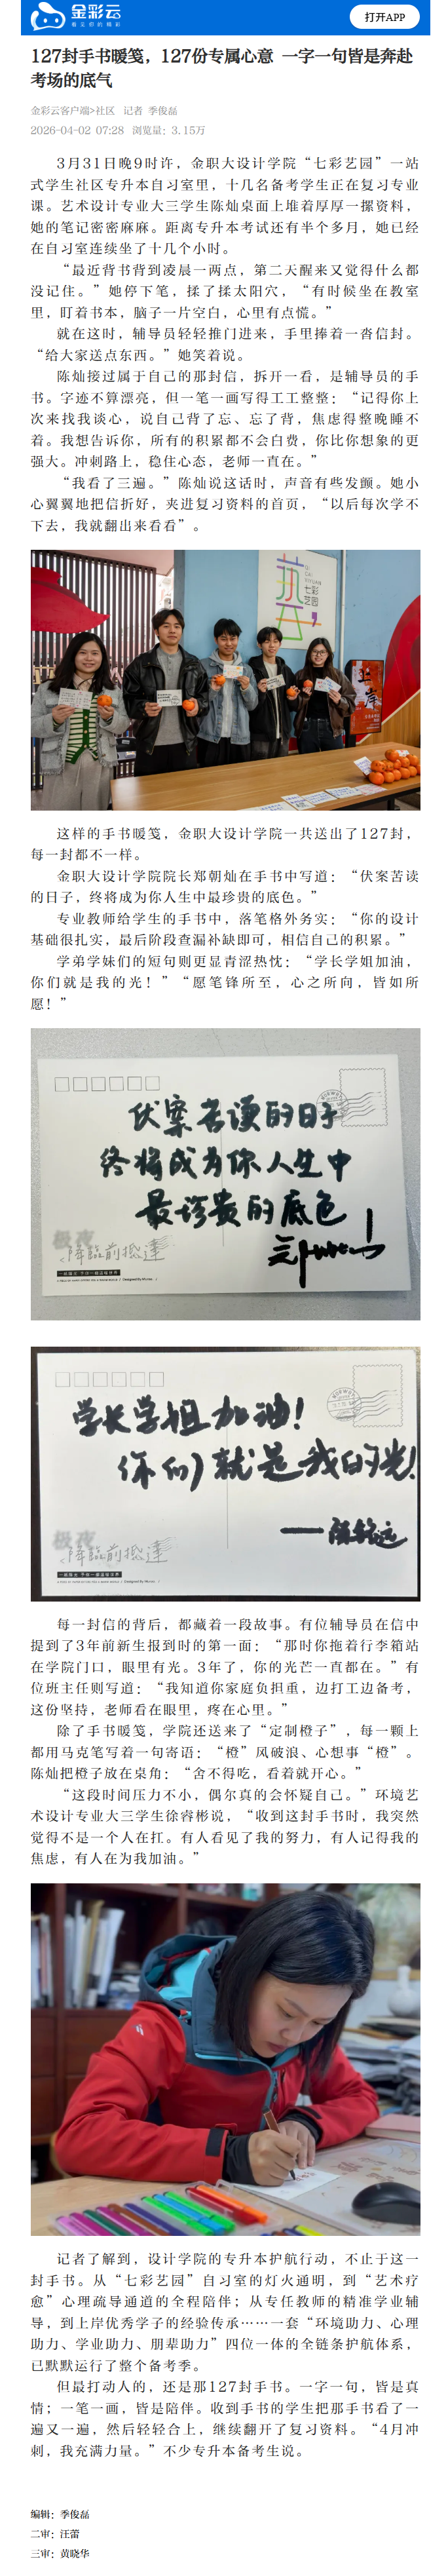 金彩云
看见你的精彩
打开APP
127封手书暖笺，127份专属心意 一字一句皆是奔赴
考场的底气
金彩云客户端>社区 记者 季俊磊
2026-04-02 07:28 浏览量：3.15万
3月31日晚9时许，金职大设计学院“七彩艺园”一站
式学生社区专升本自习室里，十几名备考学生正在复习专业
课。艺术设计专业大三学生陈灿桌面上堆着厚厚一摞资料，
她的笔记密密麻麻。距离专升本考试还有半个多月，她已经
在自习室连续坐了十几个小时。
“最近背书背到凌晨一两点，第二天醒来又觉得什么都
没记住。”她停下笔，揉了揉太阳穴，“有时候坐在教室
里，盯着书本，脑子一片空白，心里有点慌。”
就在这时，辅导员轻轻推门进来，手里捧着一沓信封。
“给大家送点东西。”她笑着说。
陈灿接过属于自己的那封信，拆开一看，是辅导员的手
书。字迹不算漂亮，但一笔一画写得工工整整：“记得你上
次来找我谈心，说自己背了忘、忘了背，焦虑得整晚睡不
着。我想告诉你，所有的积累都不会白费，你比你想象的更
强大。冲刺路上，稳住心态，老师一直在。”
“我看了三遍。”陈灿说这话时，声音有些发颤。她小
心翼翼地把信折好，夹进复习资料的首页，“以后每次学不
下去，我就翻出来看看”。
七彩
艺园
上岸
这样的手书暖笺，金职大设计学院一共送出了127封，
每一封都不一样。
金职大设计学院院长郑朝灿在手书中写道：“伏案苦读
的日子，终将成为你人生中最珍贵的底色。”
专业教师给学生的手书中，落笔格外务实：“你的设计
基础很扎实，最后阶段查漏补缺即可，相信自己的积累。”
学弟学妹们的短句则更显青涩热忱：“学长学姐加油，
你们就是我的光！”“愿笔锋所至，心之所向，皆如所
愿！”
伏案苦读的日子
终将成为你人生中
最珍贵的底色
极夜
降临前抵达
学长学姐加油！
你们就是我的光！
极夜
降临前抵达
每一封信的背后，都藏着一段故事。有位辅导员在信中
提到了3年前新生报到时的第一面：“那时你拖着行李箱站
在学院门口，眼里有光。3年了，你的光芒一直都在。”有
位班主任则写道：“我知道你家庭负担重，边打工边备考，
这份坚持，老师看在眼里，疼在心里。”
除了手书暖笺，学院还送来了“定制橙子”，每一颗上
都用马克笔写着一句寄语：“橙”风破浪、心想事“橙”。
陈灿把橙子放在桌角：“舍不得吃，看着就开心。”
“这段时间压力不小，偶尔真的会怀疑自己。”环境艺
术设计专业大三学生徐睿彬说，“收到这封手书时，我突然
觉得不是一个人在扛。有人看见了我的努力，有人记得我的
焦虑，有人在为我加油。”
记者了解到，设计学院的专升本护航行动，不止于这一
封手书。从“七彩艺园”自习室的灯火通明，到“艺术疗
愈”心理疏导通道的全程陪伴；从专任教师的精准学业辅
导，到上岸优秀学子的经验传承……一套“环境助力、心理
助力、学业助力、朋辈助力”四位一体的全链条护航体系，
已默默运行了整个备考季。
但最打动人的，还是那127封手书。一字一句，皆是真
情；一笔一画，皆是陪伴。收到手书的学生把那手书看了一
遍又一遍，然后轻轻合上，继续翻开了复习资料。“4月冲
刺，我充满力量。”不少专升本备考生说。
编辑：季俊磊
二审：汪蕾
三审：黄晓华